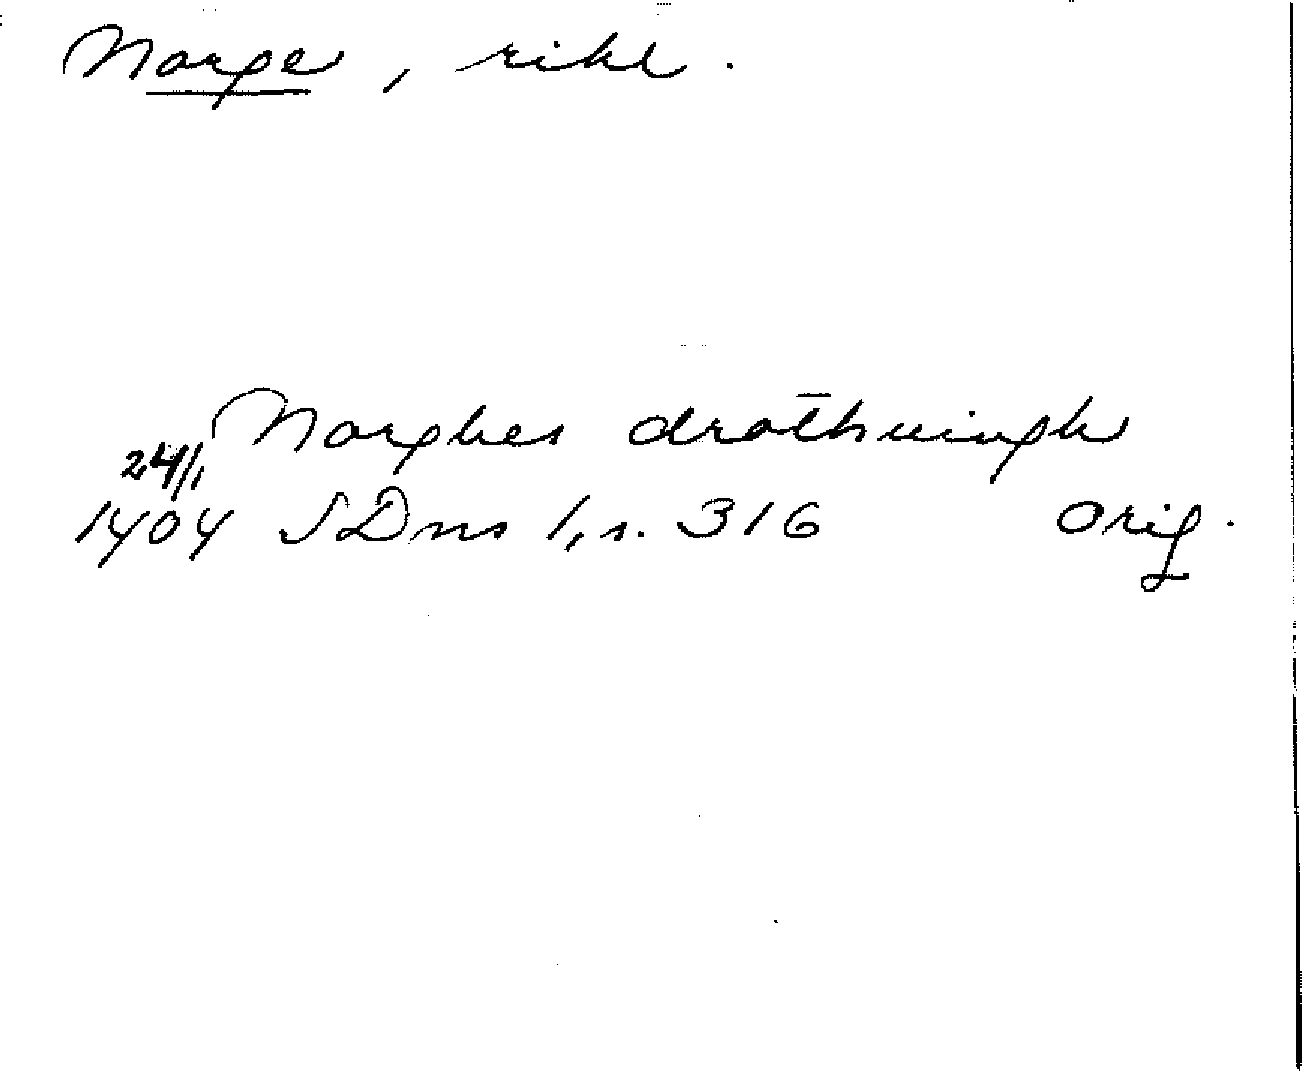 Norge, rike.
Norghes drotħningh
24/1
1404 SDns 1, s. 316 Orig.